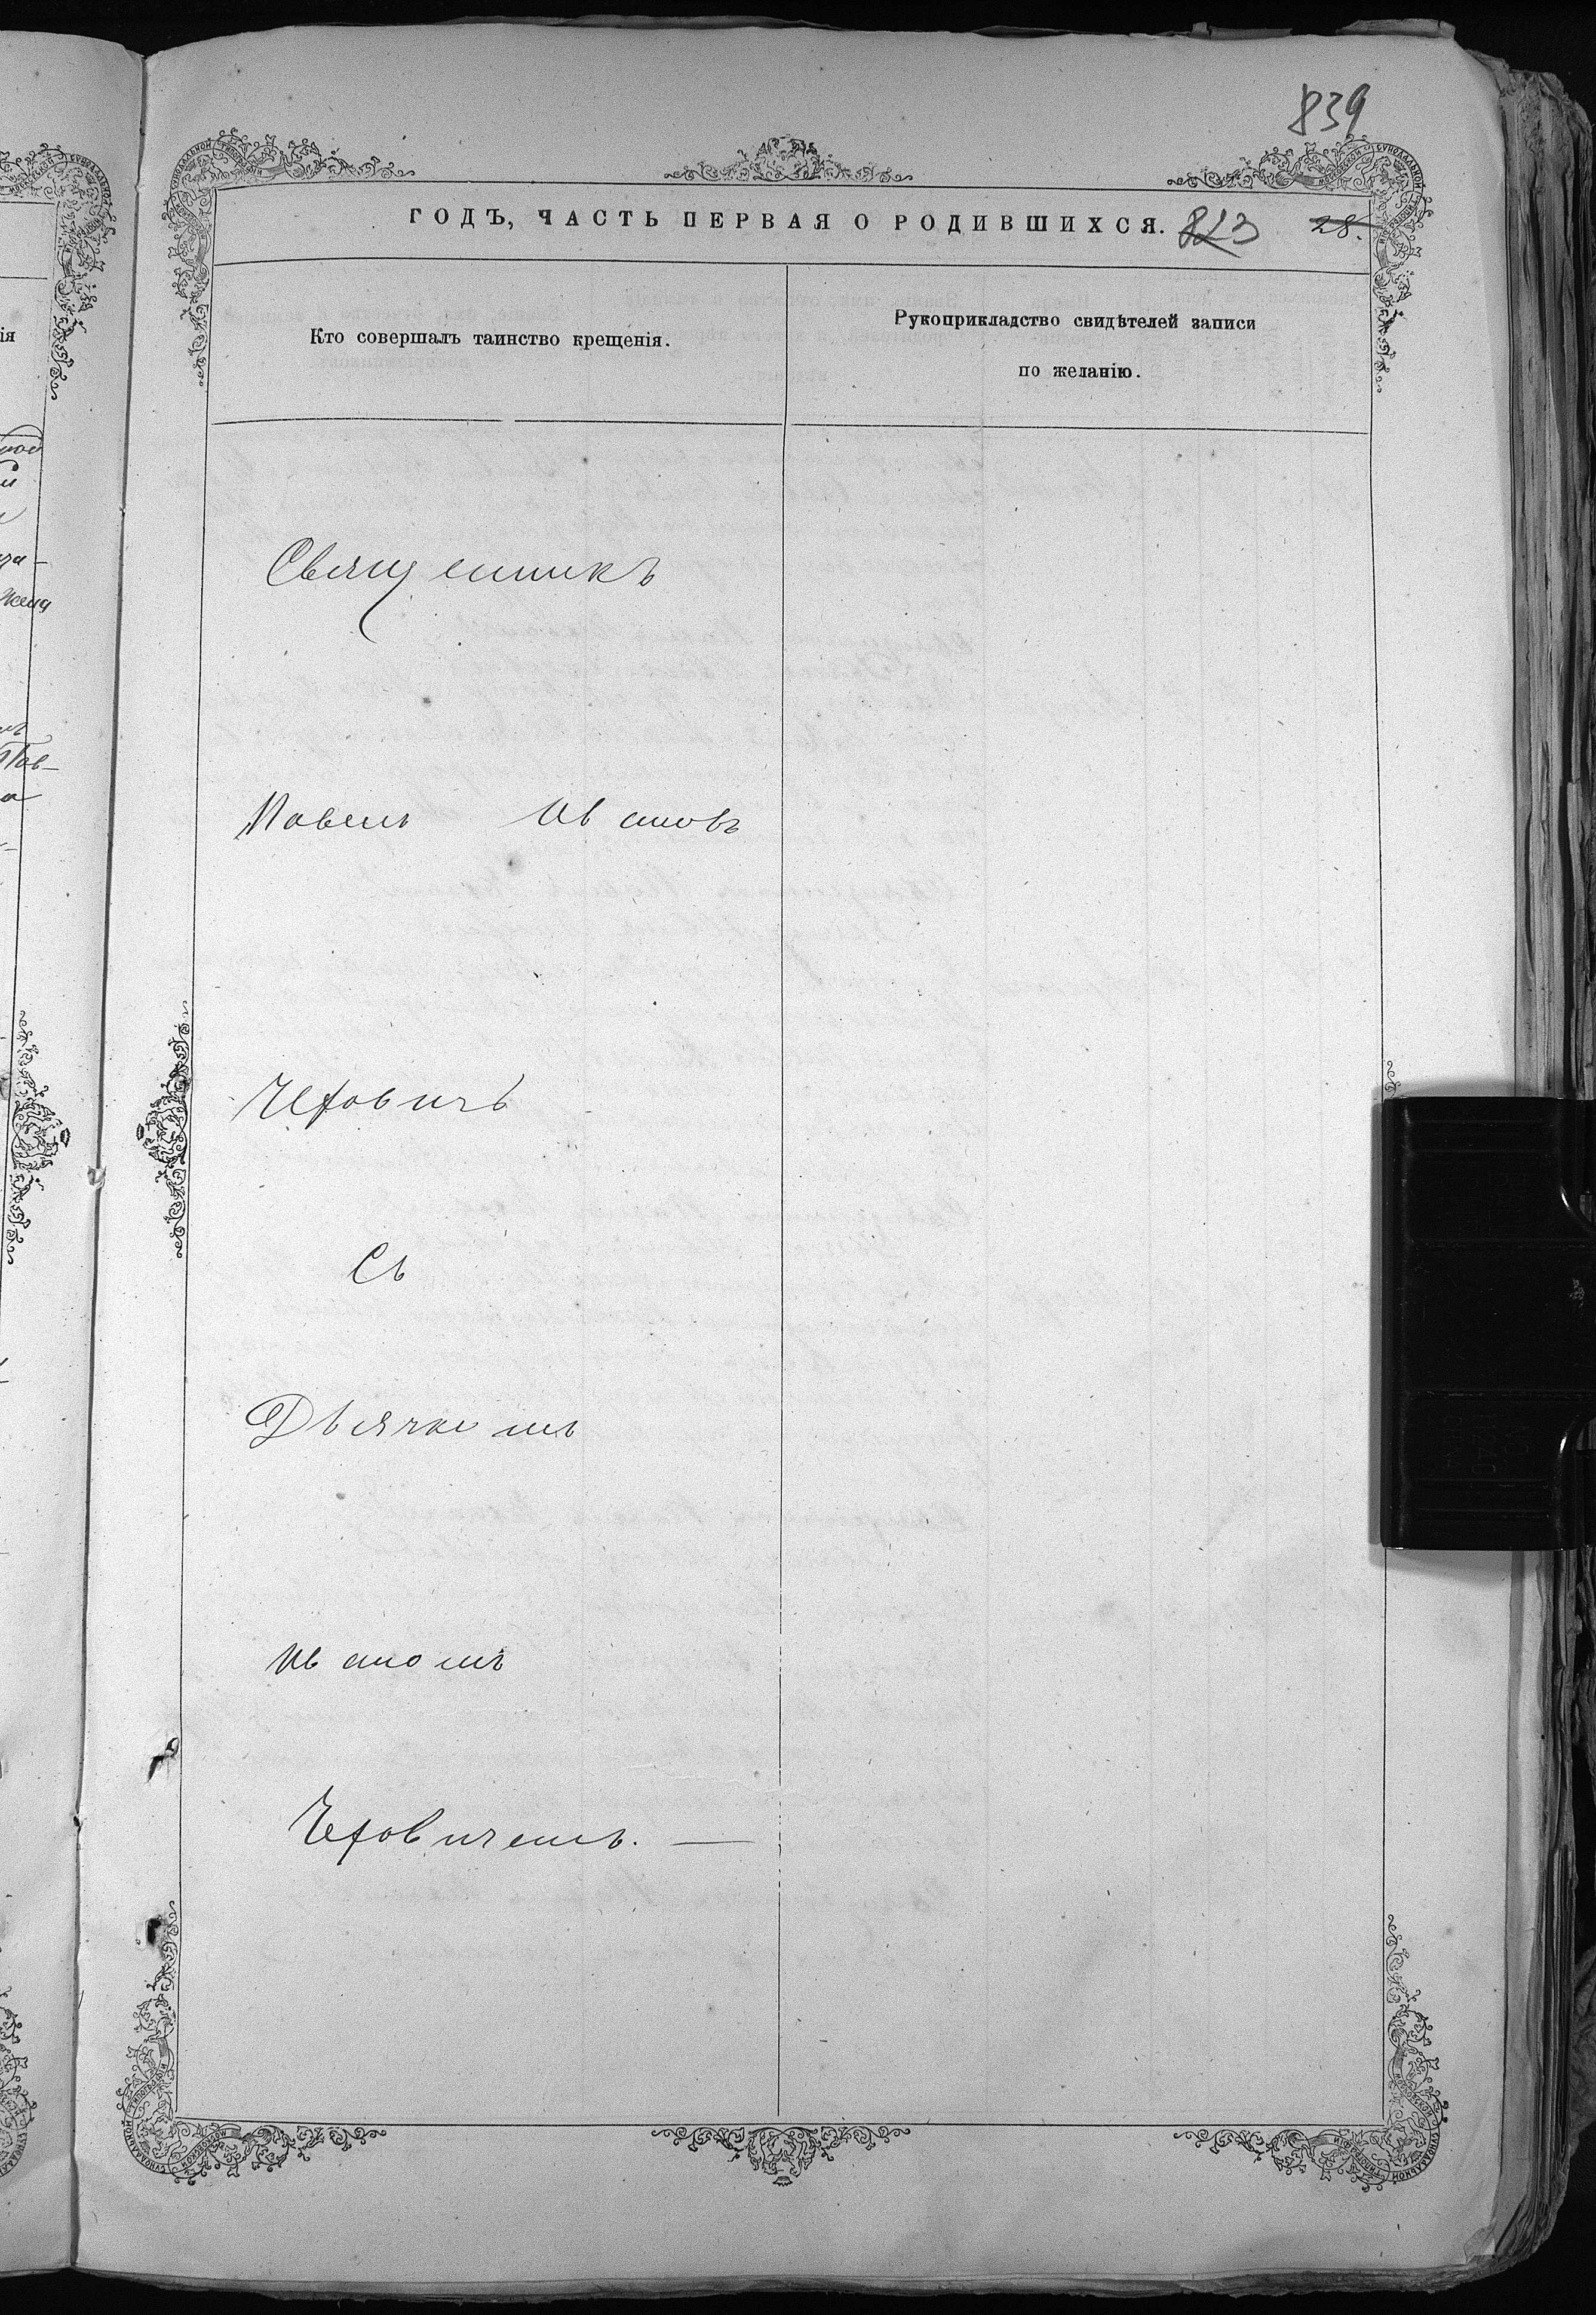 839
ГОДЪ, ЧАСТЬ ПЕРВАЯ О РОДИВШИХСЯ. 823 28.
Кто совершалъ таинство крещенія.
Рукоприкладство свидѣтелей записи
по желанію.
Священникъ
Павелъ Ивановъ
Чехович
Съ
Дьячкомъ
Иваномъ
Чеховичемъ. —